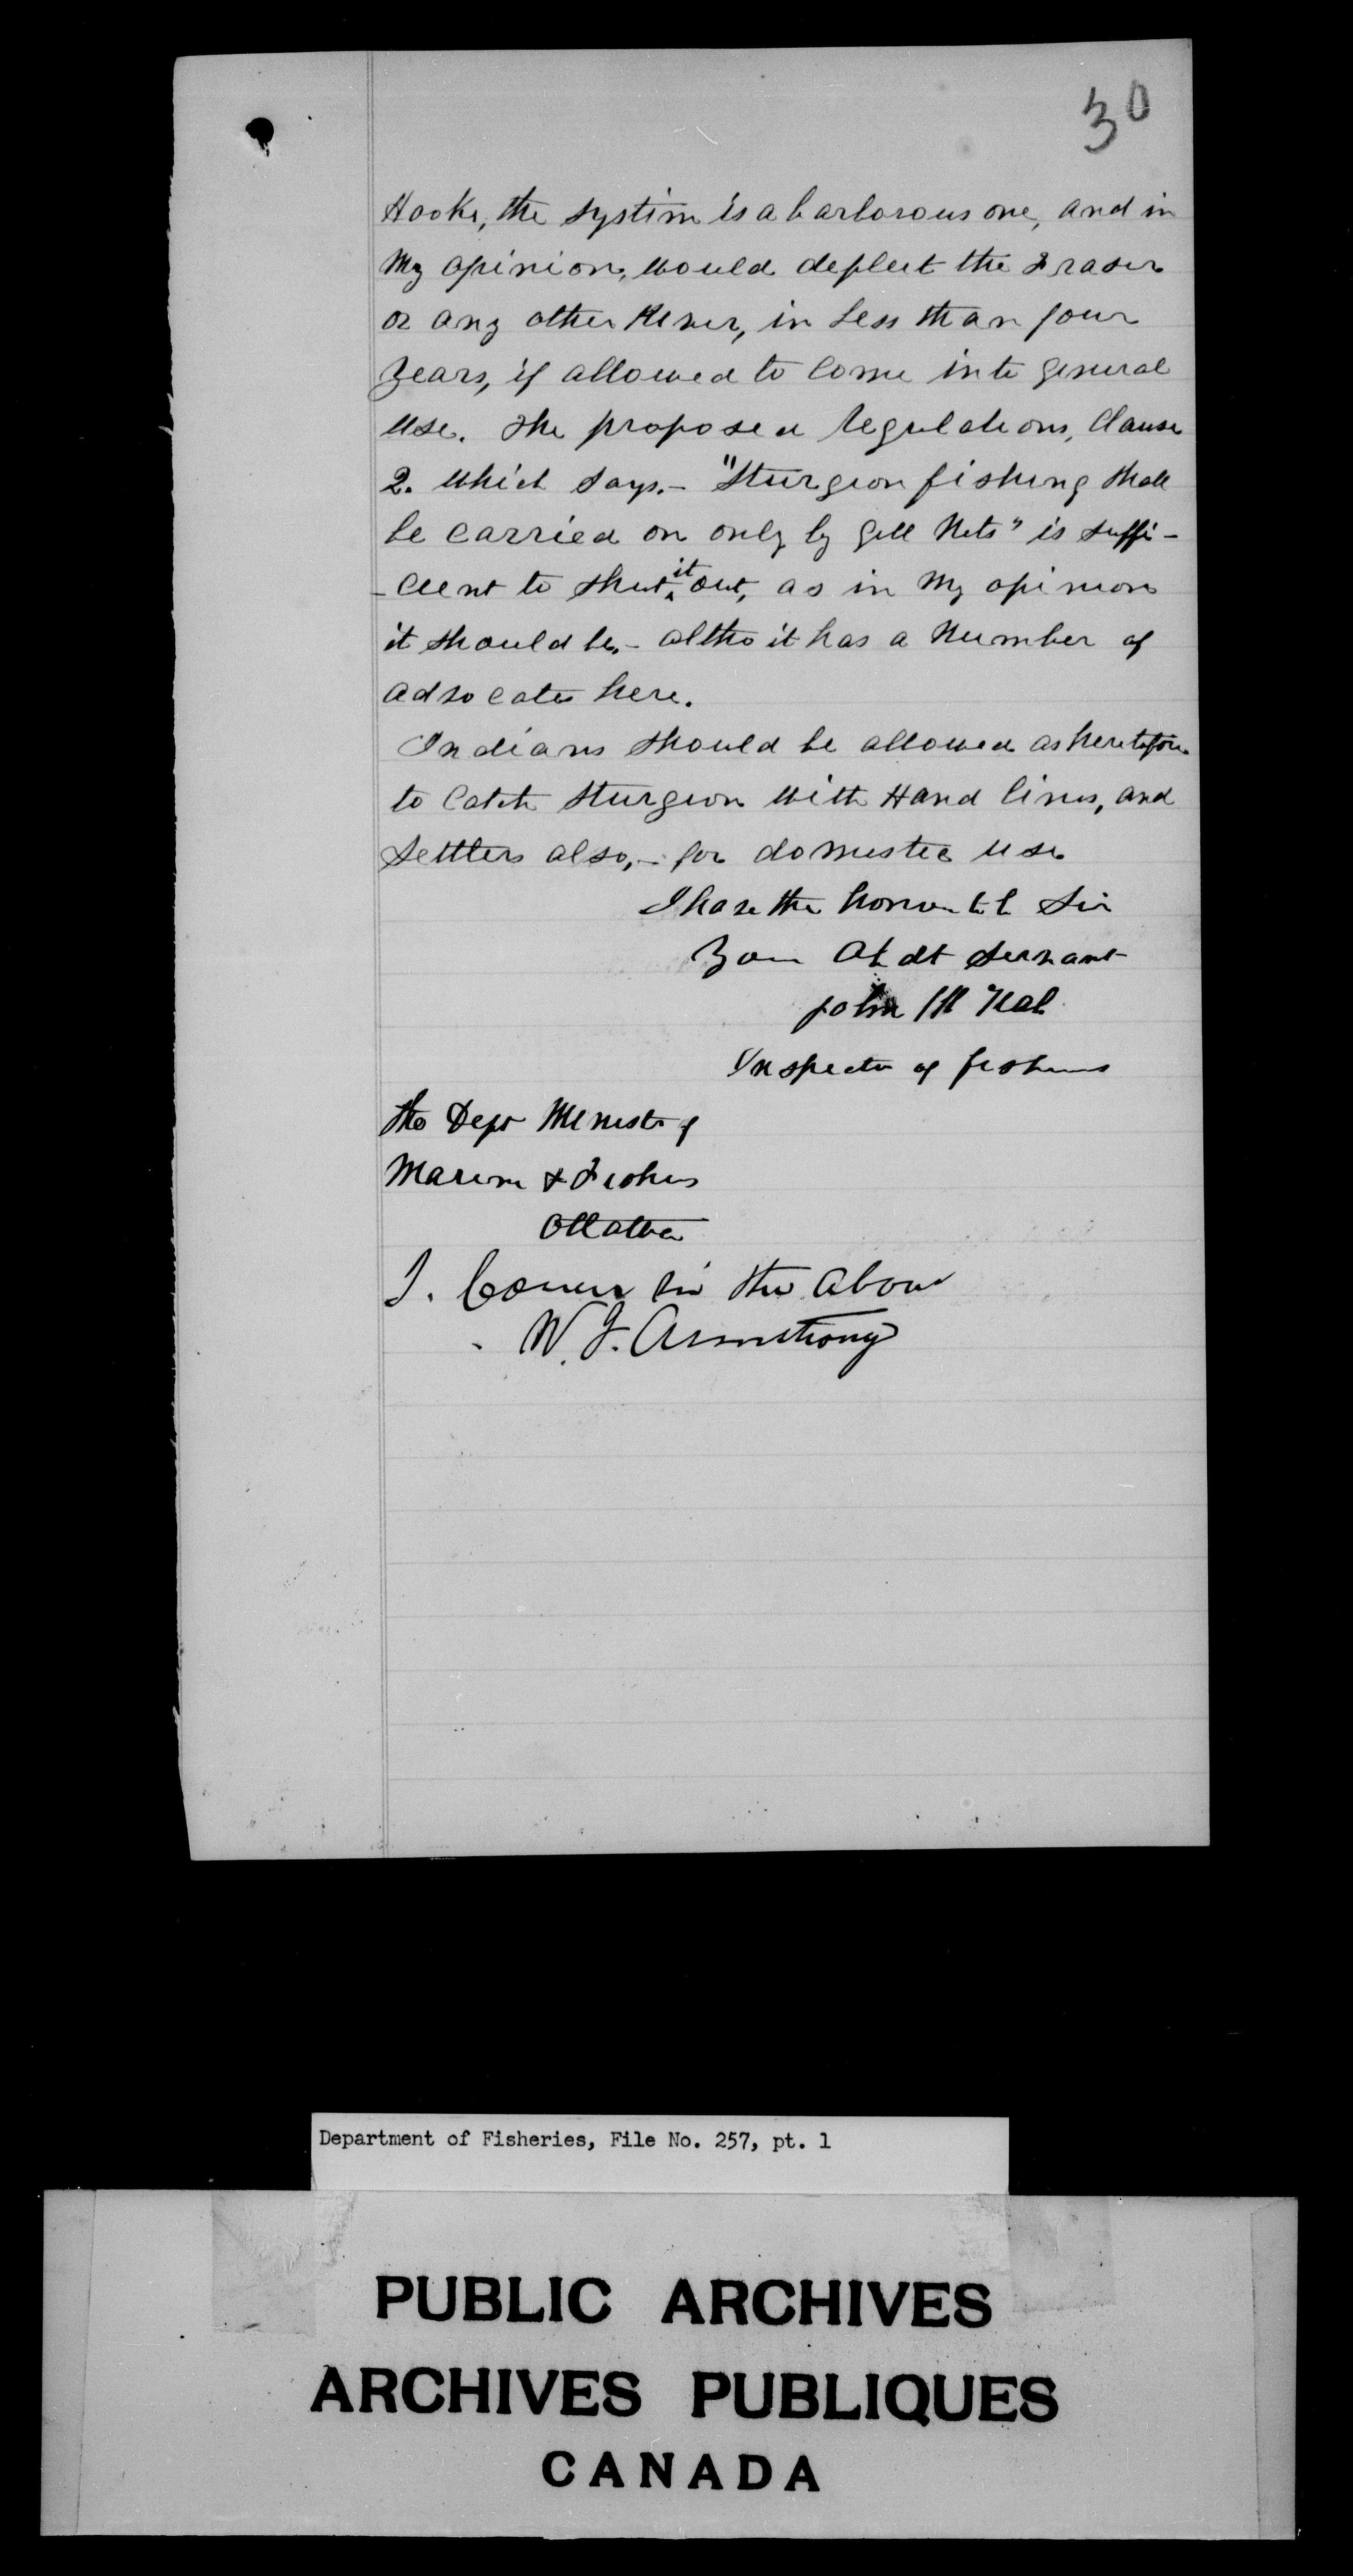 30
Hooks, the system is a barbarous one, and in
My opinion, would deplect the Fraser
or any other River, in less than four
years, if allowed to come into general
use. The proposed regulations, Clause
2. Which says.- "Sturgeon fishing shall
be carried on only by Gill Nets" is suffi-
-cient to shut it out, as in My opinion
it should be,- altho it has a Number of
advocates here.
Indians should be allowed as heretofore
to Catch Sturgeon with Hand lines, and
Settlers also,- for domestic use
I have the honor to be Sir
Your Obdt Servant
John
Inspector of fisheries
The Dept Minister of
Marine & Fisheries
Ottawa
I. Concur in the above
W. J. Armstrong
Department of Fisheries, File No. 257, pt. 1
PUBLIC ARCHIVES
ARCHIVES PUBLIQUES
CANADA